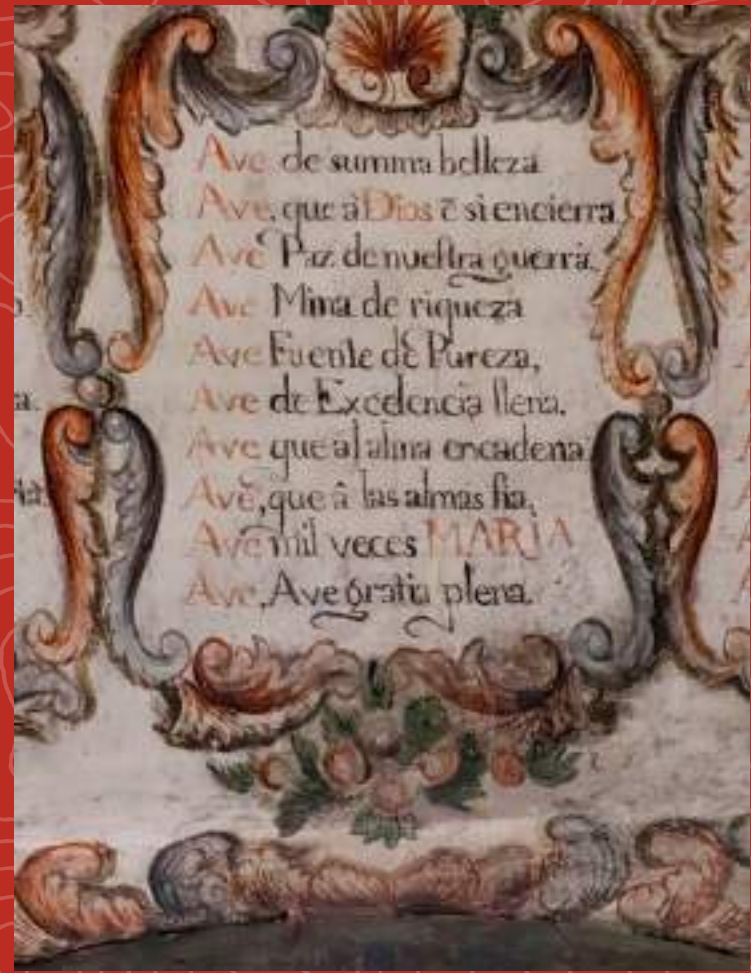 Ave de summa belleza
Ave, que à Dios ē si encierra
Ave Paz de nuestra guerra.
Ave Mina de riqueza
Ave Fuente de Pureza,
Ave de Excelencia llena.
Ave que al alma encadena
Ave, que â las almas fia,
Ave mil veces MARIA
Ave, Ave gratia plena.